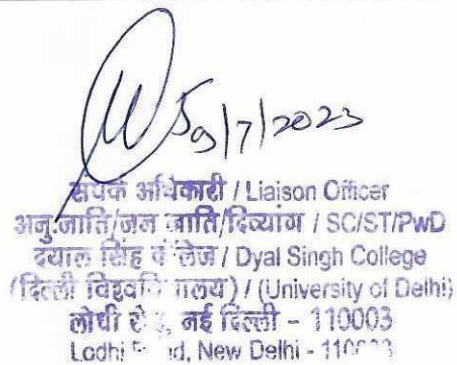 9/7/2023
संपर्क अधिकारी / Liaison Officer
अनु.जाति/जन जाति/दिव्यांग / SC/ST/PwD
दयाल सिंह कॉलेज / Dyal Singh College
(दिल्ली विश्वविद्यालय) / (University of Delhi)
लोधी रोड, नई दिल्ली - 110003
Lodhi Road, New Delhi - 110003